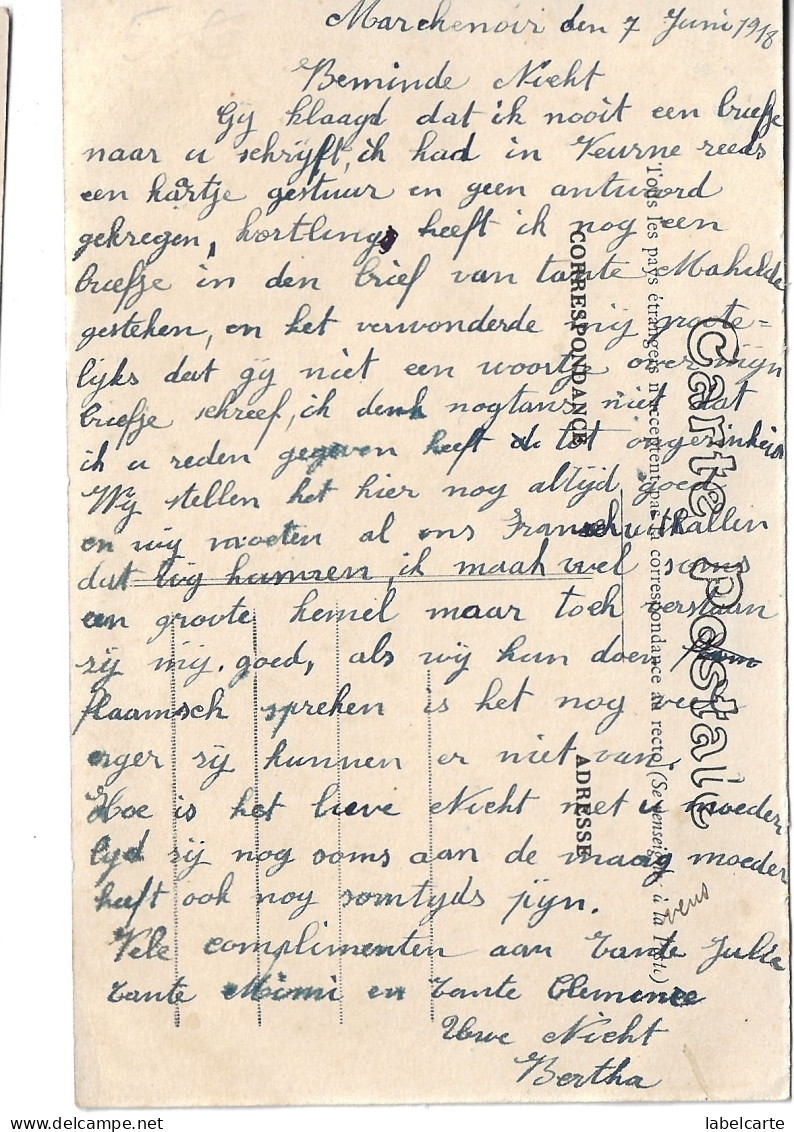 Marchenoir den 7 Juni 1918
Beminde Nicht
Gij klaagd dat ik nooit een briefje
naar u schrijft, ik had in Veurne reeds
een kartje gestuur en geen antword
gekregen, kortlings heeft ik nog een
briefje in den brief van tante Mahilde
gesteken, en het verwonderde mij groote=
lijks dat gij niet een woortje over mijn
briefje schreef, ik denk nogtans niet dat
ik u reden gegeven heeft tot
Wij stellen het hier nog altijd goed
en wij moeten al ons Fransch uithallen
dat wij kunnen, ik maak wel soms
een groote kemel maar toch verstaan
zij mij goed, als wij hun doen
flaamsch spreken is het nog veel
erger zij kunnen er niet van.
Hoe is het lieve Nicht met u moeder
lijd zij nog soms aan de maag moeder
heeft ook nog somtijds pijn.
Vele complimenten aan Tante Julie
Tante Mimi en Tante Clemence
Uwe Nicht
Bertha
Carte Postale
Tous les pays étrangers n'acceptent pas la correspondance au recto (Se renseigner à la Poste)
CORRESPONDANCE
ADRESSE
labelcarte